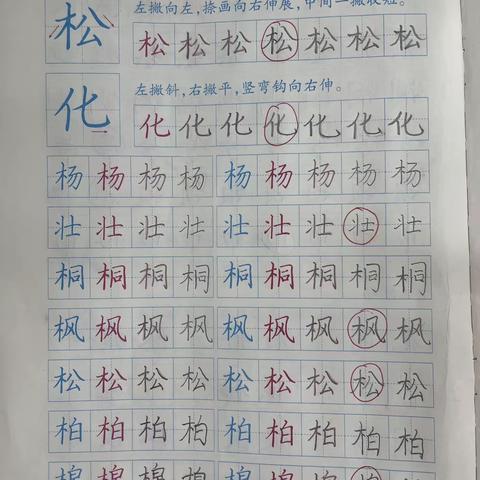 左撇向左，捺画向右伸展，中间一撇收短。
松 松 松 松 松 松 松 松
左撇斜，右撇平，竖弯钩向右伸。
化 化 化 化 化 化 化 化
杨 杨 杨 杨 杨 杨 杨 杨 杨
壮 壮 壮 壮 壮 壮 壮 壮 壮
桐 桐 桐 桐 桐 桐 桐 桐 桐
枫 枫 枫 枫 枫 枫 枫 枫 枫
松 松 松 松 松 松 松 松 松
柏 柏 柏 柏 柏 柏 柏 柏 柏
棉 棉 棉 棉 棉 棉 棉 棉 棉